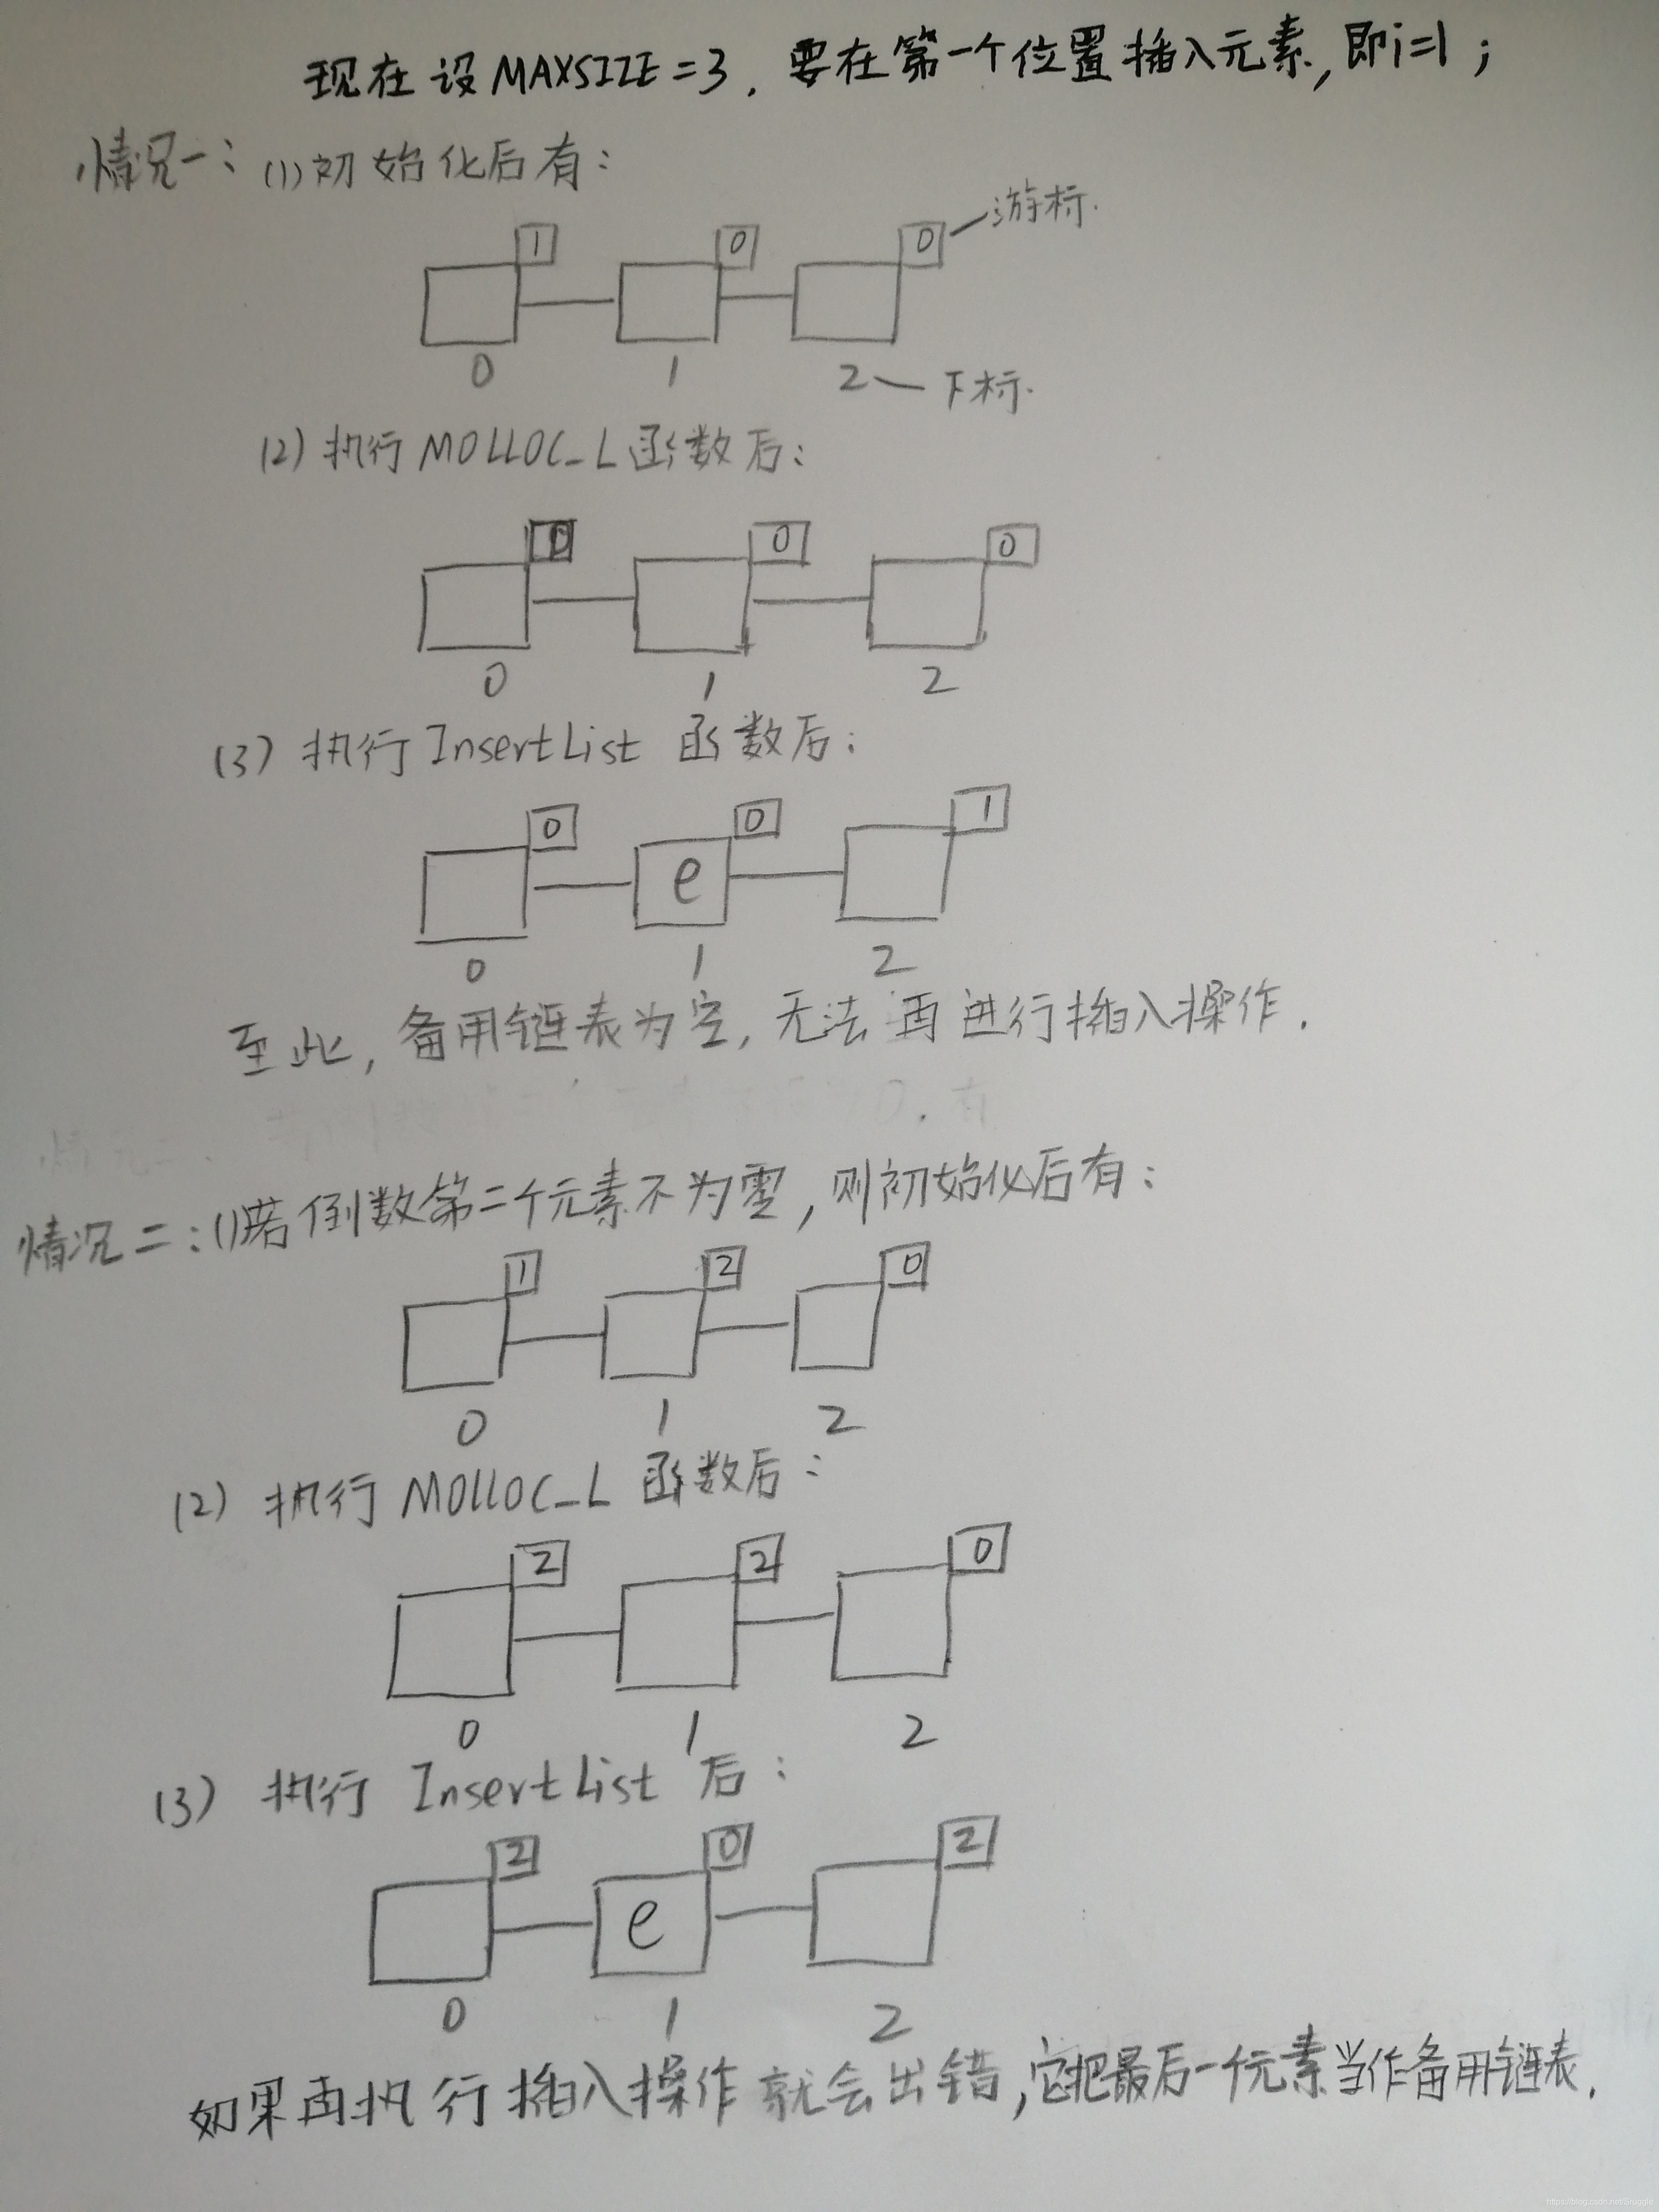 现在设MAXSIZE=3，要在第一个位置插入元素，即i=1；
情况一：(1)初始化后有：
1 0 0 游标.
0 1 2 下标.
(2)执行MOLLOC_L函数后：
0 0 0
0 1 2
(3)执行InsertList函数后：
0 0 1
e
0 1 2
至此，备用链表为空，无法再进行插入操作.
情况二：(1)若倒数第二个元素不为零，则初始化后有：
1 2 0
0 1 2
(2)执行MOLLOC_L函数后：
2 2 0
0 1 2
(3)执行InsertList后：
2 0 2
e
0 1 2
如果再执行插入操作就会出错，它把最后一个元素当作备用链表.